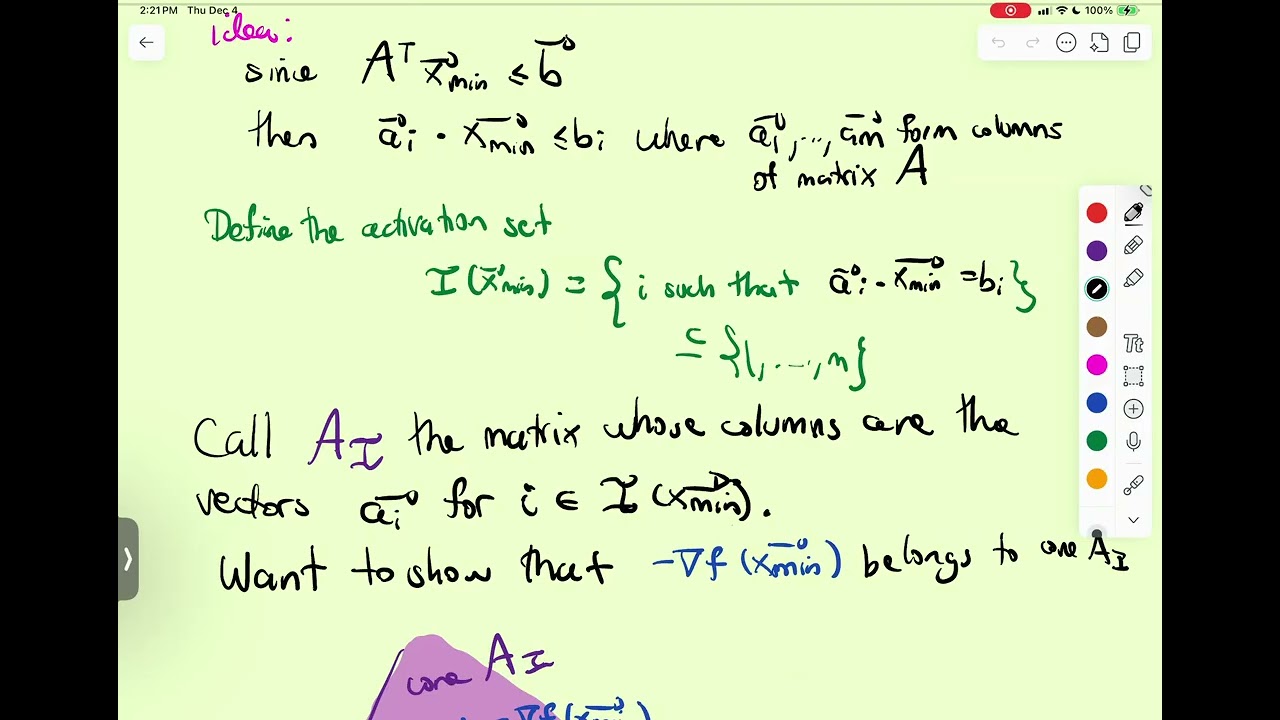 2:21 PM Thu Dec 4 100%
idea:
since Aᵀ x⃗min ≤ b⃗
then a⃗i · x⃗min ≤ bi where a⃗1, ..., a⃗m form columns
of matrix A
Define the activation set
I(x⃗min) = { i such that a⃗i · x⃗min = bi }
⊆ {1, ..., n}
Call A_I the matrix whose columns are the
vectors a⃗i for i ∈ I(x⃗min).
Want to show that -∇f(x⃗min) belongs to cone A_I
cone A_I
-∇f(x⃗min)
Tt